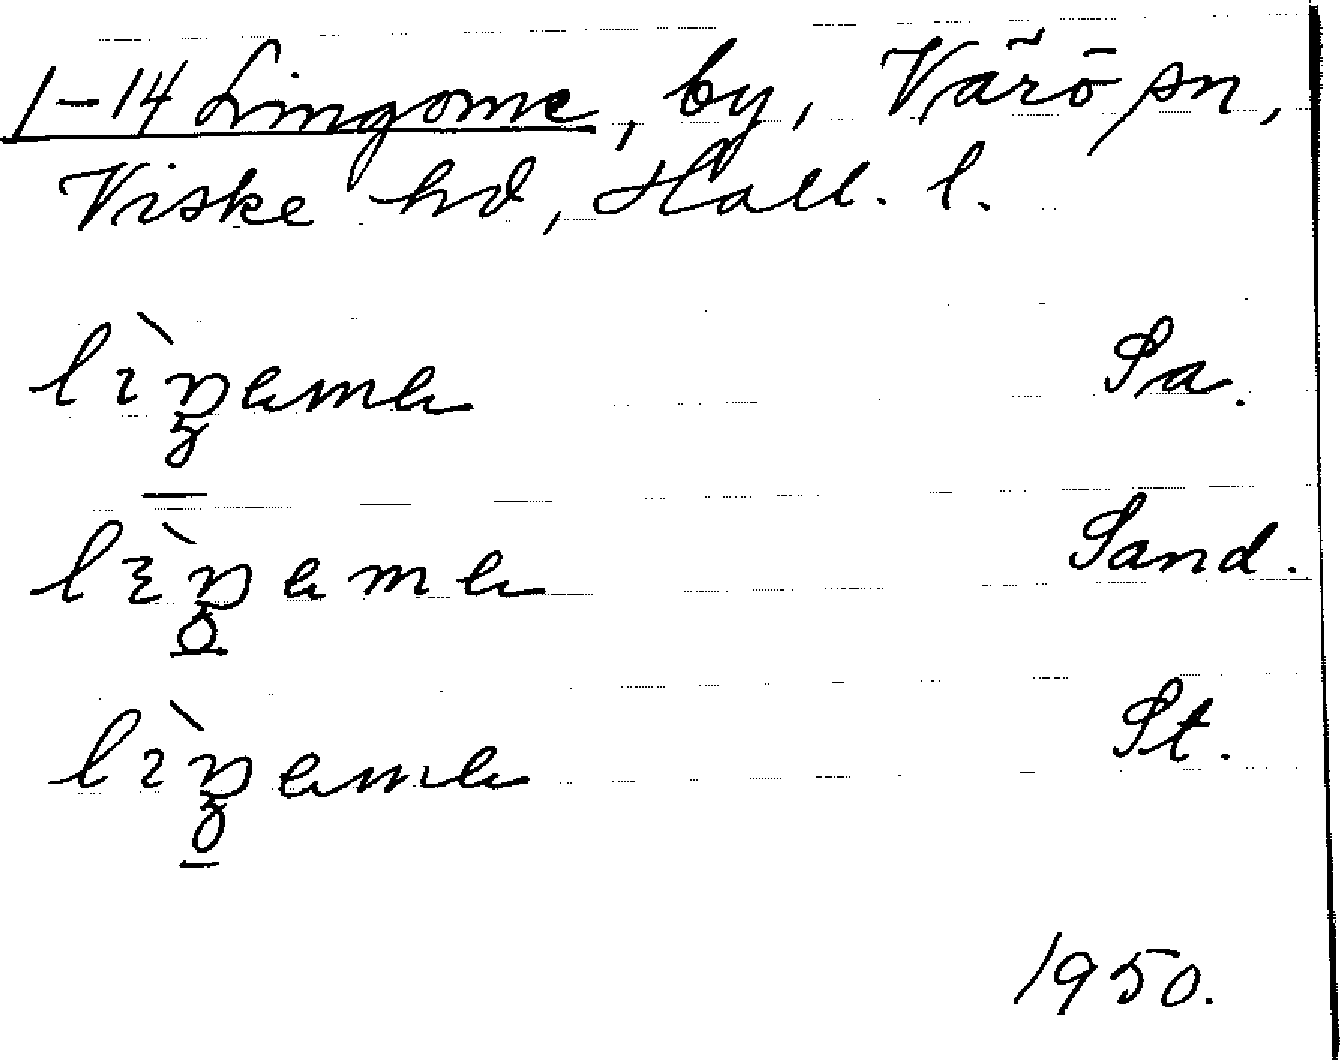 1-14 Lingome, by, Värö sn,
Viske hd, Hall. l.
Sa.
Sand.
St.
1950.